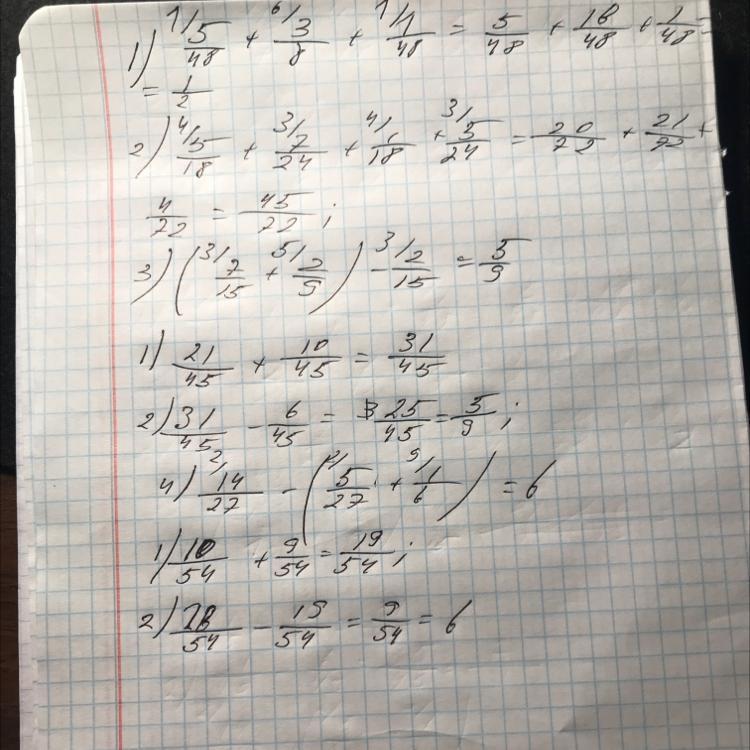 1) 1/ 5/48 + 6/ 3/8 + 1/ 1/48 = 5/48 + 18/48 + 1/48 =
= 1/2
2) 4/ 5/18 + 3/ 7/24 + 4/ 1/18 + 3/ 5/24 = 20/72 + 21/72 +
4/72 = 45/72 ;
3) ( 3/ 7/15 + 5/ 2/9 ) - 3/ 2/15 = 5/9
1) 21/45 + 10/45 = 31/45
2) 31/45 - 6/45 = 25/45 = 5/9 ;
4) 2/ 14/27 - ( 2/ 5/27 + 9/ 1/6 ) = 6
1) 10/54 + 9/54 = 19/54 ;
2) 28/54 - 19/54 = 9/54 = 6